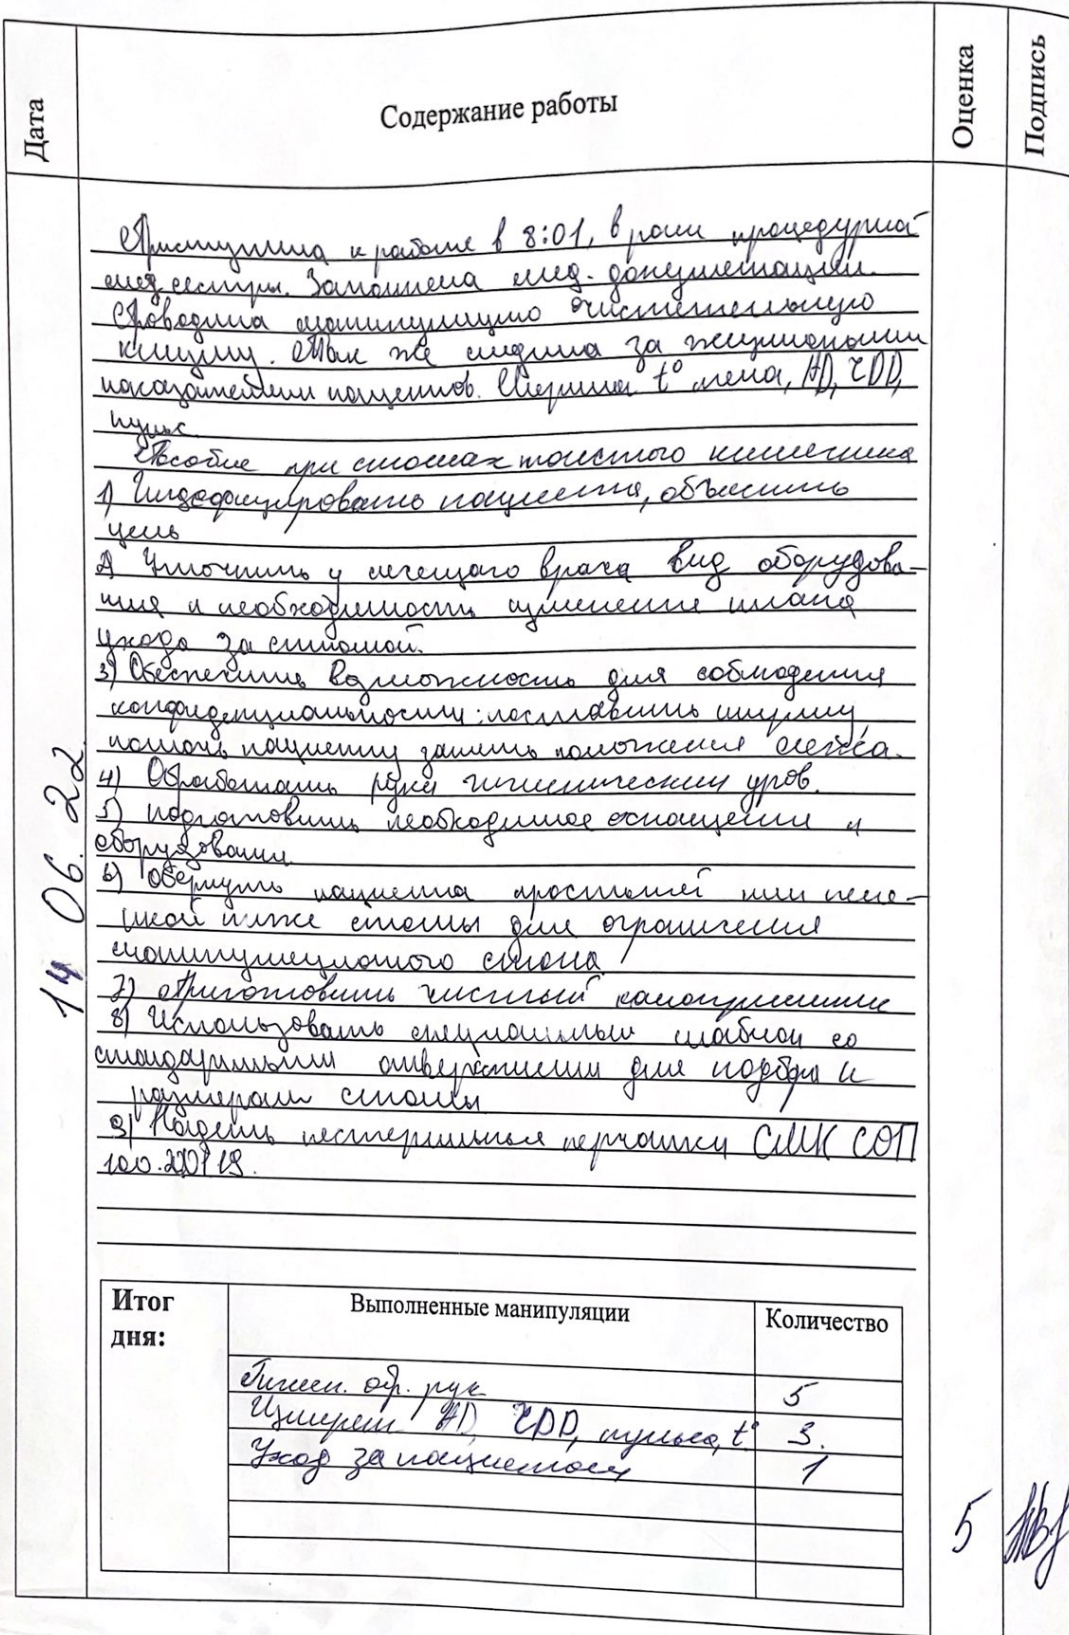 Дата
Содержание работы
Оценка
Подпись
14 06. 22
Приступила к работе в 8:01, в роли процедурной
мед сестры. Заполнела мед. документации.
Проводила манипуляцию очистительную
клизму. Так же следила за жизнеными
показателями пациентов. Мерила t° тела, АД, ЧДД,
пульс.
Пособие при стомах толстого кишечника
1) Индефицировать пациента, объяснить
цель
2) Уточнить у лечещаго врача вид оборудова-
ния и необходимость изменения плана
ухода за стомой.
3) Обеспечить возможность для соблюдения
конфиденциальности: поставить ширму,
помочь пациенту занять положения лежа.
4) Обработать руки гигиеническим уров.
5) подготовить необходимое оснащении и
оборудовании
6) обернуть пациента простыней или пеле-
нкой ниже стомы для ограничения
манипуляционого стола
7) Приготовить чистый калоприемник
8) Использовать специальный шаблон со
стандартными отверстиями для подбора
размерам стомы
9) Надеть нестерильные перчатки СМК СОП
Итог
дня:
Выполненные манипуляции
Количество
Гигиен. обр. рук 5
Измерен. АД, ЧДД, пульса, t° 3.
Уход за пациентом 1
5